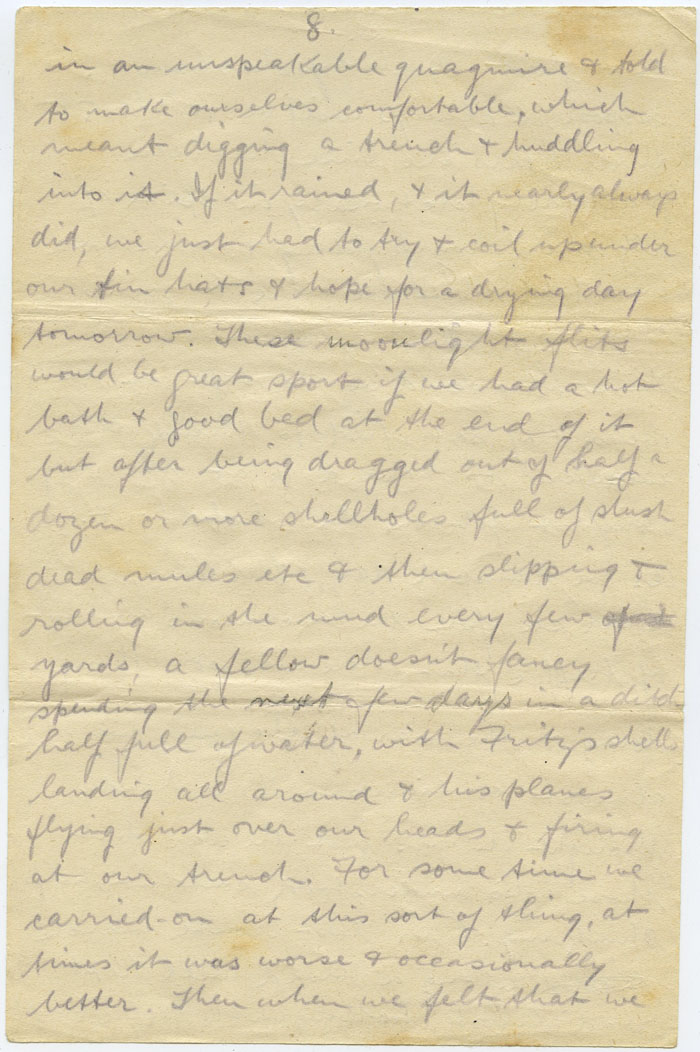 8.
in an unspeakable quagmire & told
to make ourselves comfortable, which
meant digging a trench & huddling
into it. If it rained, & it nearly always
did, we just had to try & coil up under
our tin hats & hope for a drying day
tomorrow. These moonlight flits
would be great sport if we had a hot
bath & good bed at the end of it
but after being dragged out of half a
dozen or more shellholes full of slush
dead mules etc & then slipping &
rolling in the mud every few
yards, a fellow doesn't fancy
spending the next few days in a ditch
half full of water, with Fritz's shells
landing all around & his planes
flying just over our heads & firing
at our trench. For some time we
carried-on at this sort of thing, at
times it was worse & occasionally
better. Then when we felt that we